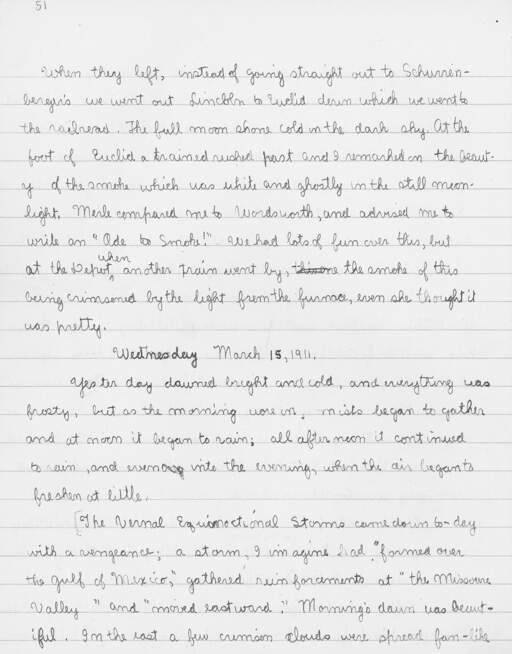 51
When they left, instead of going straight out to Schurren-
berger's we went out Lincoln to Euclid down which we went to
the railroad. The full moon shone cold in the dark sky. At the
foot of Euclid a trained rushed past and I remarked on the beaut-
y of the smoke which was white and ghostly in the still moon-
light. Merle compared me to Wordsworth, and advised me to
write an "Ode to Smoke!" We had lots of fun over this, but
when
at the Depot, another train went by, the smoke of this
being crimsoned by the light from the furnace, even she thought it
was pretty.
Wednesday March 15, 1911.
Yesterday dawned bright and cold, and everything was
frosty, but as the morning wore on, mists began to gather
and at noon it began to rain; all afternoon it continued
to rain, and even into the evening, when the air began to
freshen at little.
[The Vernal Equinoctional Storms came down to-day
with a vengeance; a storm, I imagine had "formed over
the gulf of Mexico," gathered reinforcements at "the Missouri
Valley" and "moved eastward." Morning's dawn was beaut-
iful. In the east a few crimson clouds were spread fan-like